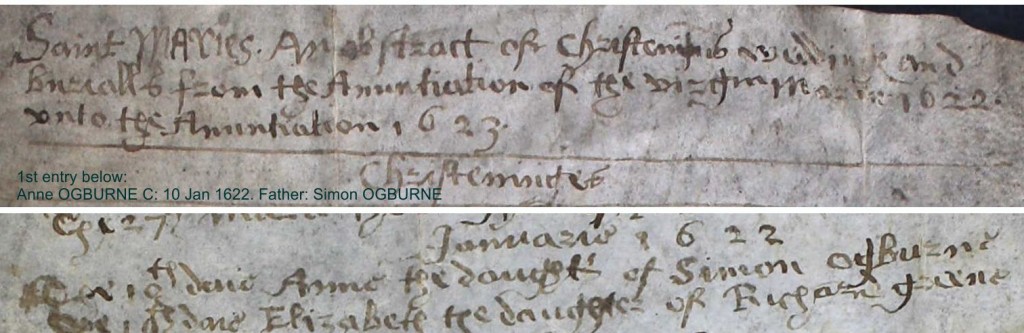 Saint Maries. An obstract of Christenings weddings and
burialls from the Anuntiation of the virgin Marie 1622.
vnto the Anuntiation 1623.
Christeninges
1st entry below:
Anne OGBURNE C: 10 Jan 1622. Father: Simon OGBURNE
The 27
Januarie 1622
The 10th daie Anne the daught^r of Simon Ogburne
The daie Elizabeth the daughter of Richard greene